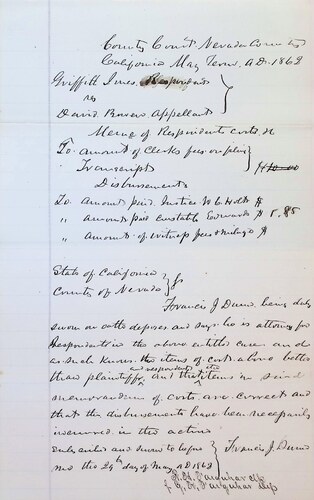 County Court Nevada County
California May Term, A.D. 1862
Griffith Respondent
vs
David Appellant
Memo of Respondents costs &c
To amount of Clerks fees on
Transcripts
Disbursements
To Amount paid Justice
" amount paid Constable Edwards 5.85
" amount of witness fees & milage
State of California
County of Nevada } ss
Francis J Dunn being duly
sworn on oath deposes and says he is attorney for
Respondent in the above entitled case and
as such knows the items of costs above better
than plaintiff and respondent and that the items in said
memorandum of costs are correct and
that the disbursements have been necessarily
incurred in the action
Subscribed and sworn to before } Francis J. Dunn
me this 24th day of May A.D 1862
Farquhar Clk
Farquhar Dep